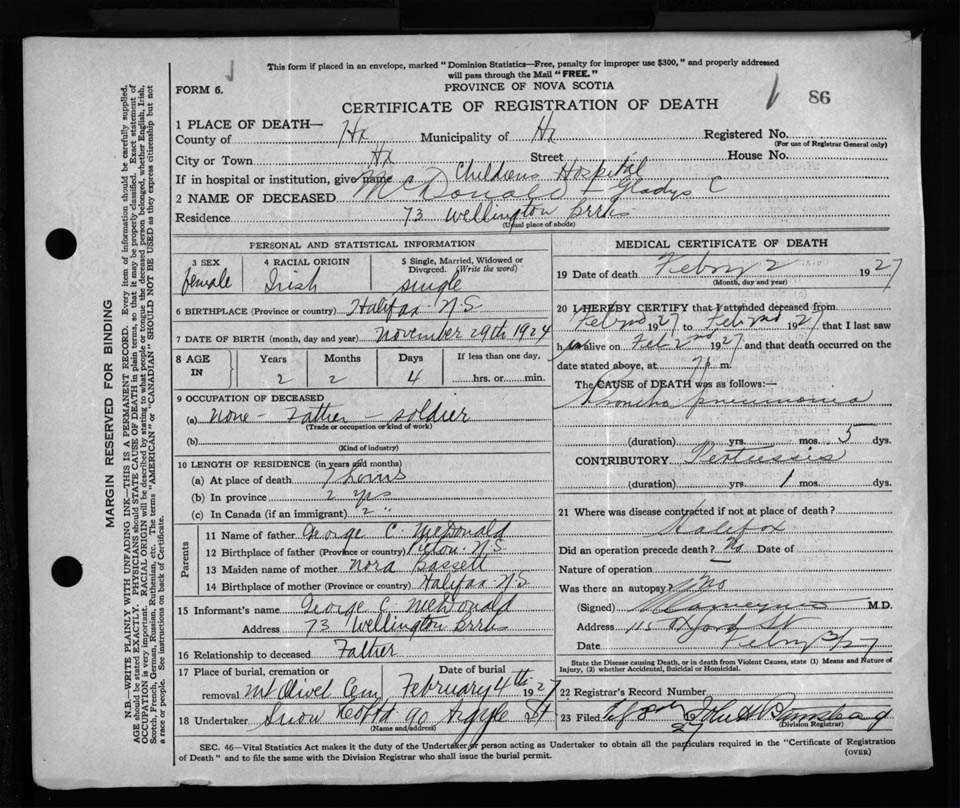 This form if placed in an envelope, marked "Dominion Statistics—Free, penalty for improper use $300," and properly addressed
will pass through the Mail "FREE."
FORM 6.
PROVINCE OF NOVA SCOTIA
CERTIFICATE OF REGISTRATION OF DEATH
86
1 PLACE OF DEATH—
County of Hx Municipality of Hx Registered No.
(For use of Registrar General only)
City or Town Hx Street House No.
If in hospital or institution, give name Childrens Hospital
2 NAME OF DECEASED McDonald - Gladys C
Residence 73 Wellington Brrks
(Usual place of abode)
PERSONAL AND STATISTICAL INFORMATION
3 SEX 4 RACIAL ORIGIN 5 Single, Married, Widowed or Divorced. (Write the word)
female Irish single
6 BIRTHPLACE (Province or country) Halifax N.S.
7 DATE OF BIRTH (month, day and year) November 29th 1924
8 AGE IN Years Months Days If less than one day,
2 2 4 hrs. or min.
9 OCCUPATION OF DECEASED
(a) none - Father - soldier
(Trade or occupation or kind of work)
(b)
(Kind of industry)
10 LENGTH OF RESIDENCE (in years and months)
(a) At place of death 7 hours
(b) In province 2 yrs
(c) In Canada (if an immigrant) 2 "
Parents
11 Name of father George C. McDonald
12 Birthplace of father (Province or country) Pictou N.S.
13 Maiden name of mother Nora Bassett
14 Birthplace of mother (Province or country) Halifax N.S
15 Informant's name George C. McDonald
Address 73 Wellington Brrks
16 Relationship to deceased Father
17 Place of burial, cremation or removal Mt Olivet Cem Date of burial February 4th 1927
18 Undertaker Snow & Co Ltd 90 Argyle St
(Name and address)
MEDICAL CERTIFICATE OF DEATH
19 Date of death Febry 2 1927
(Month, day and year)
20 I HEREBY CERTIFY that I attended deceased from
Feb 2nd 1927 to Feb 2nd 1927 that I last saw
h alive on Feb 2nd 1927 and that death occurred on the
date stated above, at 7 p. m.
The CAUSE of DEATH was as follows:—
Broncho pneumonia
(duration) yrs. mos. 5 dys.
CONTRIBUTORY Pertussis
(duration) yrs. 1 mos. dys.
21 Where was disease contracted if not at place of death?
Halifax
Did an operation precede death? No Date of
Nature of operation
Was there an autopsy? No
(Signed) M.D.
Address 115 St
Date Febry 27
State the Disease causing Death, or in death from Violent Causes, state (1) Means and Nature of
Injury, (2) whether Accidental, Suicidal or Homicidal.
22 Registrar's Record Number
23 Filed John H Barnstead
27
(Division Registrar)
SEC. 46—Vital Statistics Act makes it the duty of the Undertaker or person acting as Undertaker to obtain all the particulars required in the "Certificate of Registration
of Death" and to file the same with the Division Registrar who shall issue the burial permit.
(OVER)
MARGIN RESERVED FOR BINDING
N.B.—WRITE PLAINLY WITH UNFADING INK—THIS IS A PERMANENT RECORD. Every item of information should be carefully supplied.
AGE should be stated EXACTLY. PHYSICIANS should STATE CAUSE OF DEATH in plain terms, so that it may be properly classified. Exact statement of
OCCUPATION is very important. RACIAL ORIGIN will be described by stating to what people or tongue the deceased person belonged, whether English, Irish,
Scotch, French, German, Russian, Ruthenian, etc. The terms "AMERICAN" or "CANADIAN" SHOULD NOT BE USED as they express citizenship but not
a race or people. See instructions on back of Certificate.